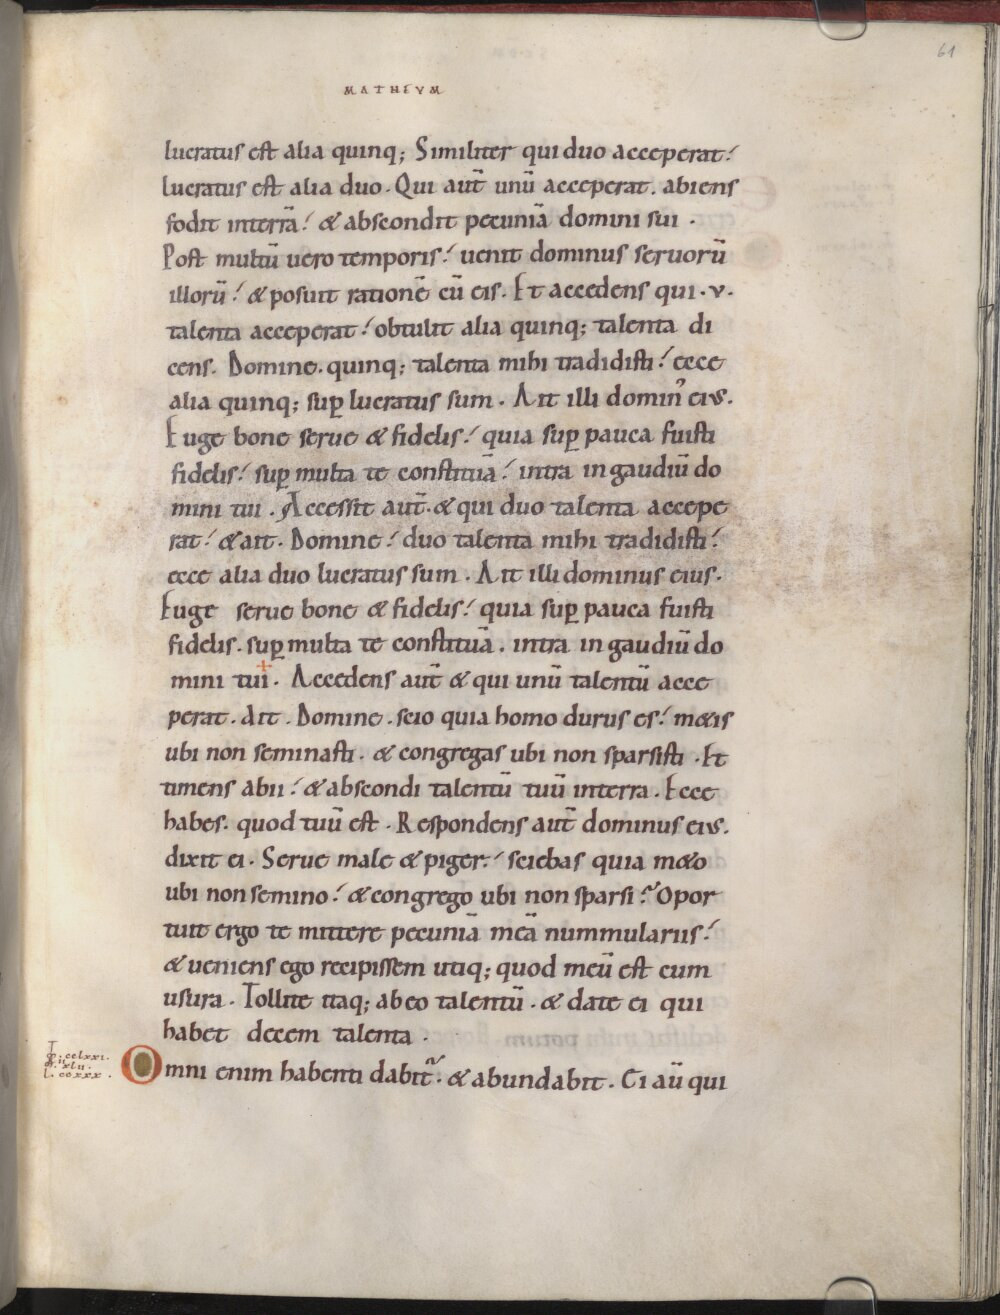 61
MATHEVM
lucratus est alia quinq; Similiter qui duo acceperat!
lucratus est alia duo. Qui aut̄ unū acceperat. abiens
fodit interrā! & abscondit pecuniā domini sui.
Post multū uero temporis! uenit dominus seruorū
illorū! & posuit rationē cū eis. Et accedens qui .v.
talenta acceperat! obtulit alia quinq; talenta di
cens. Domine. quinq; talenta mihi tradidisti! ecce
alia quinq; sup̲ lucratus sum. Ait illi domin᾿ eius.
Euge bone serue & fidelis! quia sup̲ pauca fuisti
fidelis! sup̲ multa te constituā! intra in gaudiū do
mini tui. Accessit aut̄. & qui duo talenta accepe
rat! & ait. Domine! duo talenta mihi tradidisti!
ecce alia duo lucratus sum. Ait illi dominus eius.
Euge serue bone & fidelis! quia sup̲ pauca fuisti
fidelis. sup̲ multa te constituā. intra in gaudiū do
mini tui. Accedens aut̄ & qui unū talentū acce
perat. Ait. Domine. scio quia homo durus es! m&is
ubi non seminasti. & congregas ubi non sparsisti. Et
timens abii! & abscondi talentū tuū interra. Ecce
habes. quod tuū est. Respondens aut̄ dominus eius.
dixit ei. Serue male & piger! sciebas quia m&o
ubi non semino! & congrego ubi non sparsi? Opor
tuit ergo te mittere pecuniā meā nummulariis!
& ueniens ego recipissem utiq; quod meū est cum
usura. Tollite itaq; ab eo talentū. & date ei qui
habet decem talenta.
Omni enim habenti dabit᷑. & abundabit. Ei aū qui
cclxxi.
xlii.
l. ccxxx.